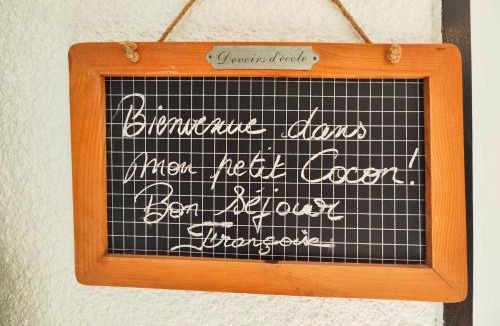 Devoirs d'école
Bienvenue dans
mon petit Cocon!
Bon Séjour
Françoise